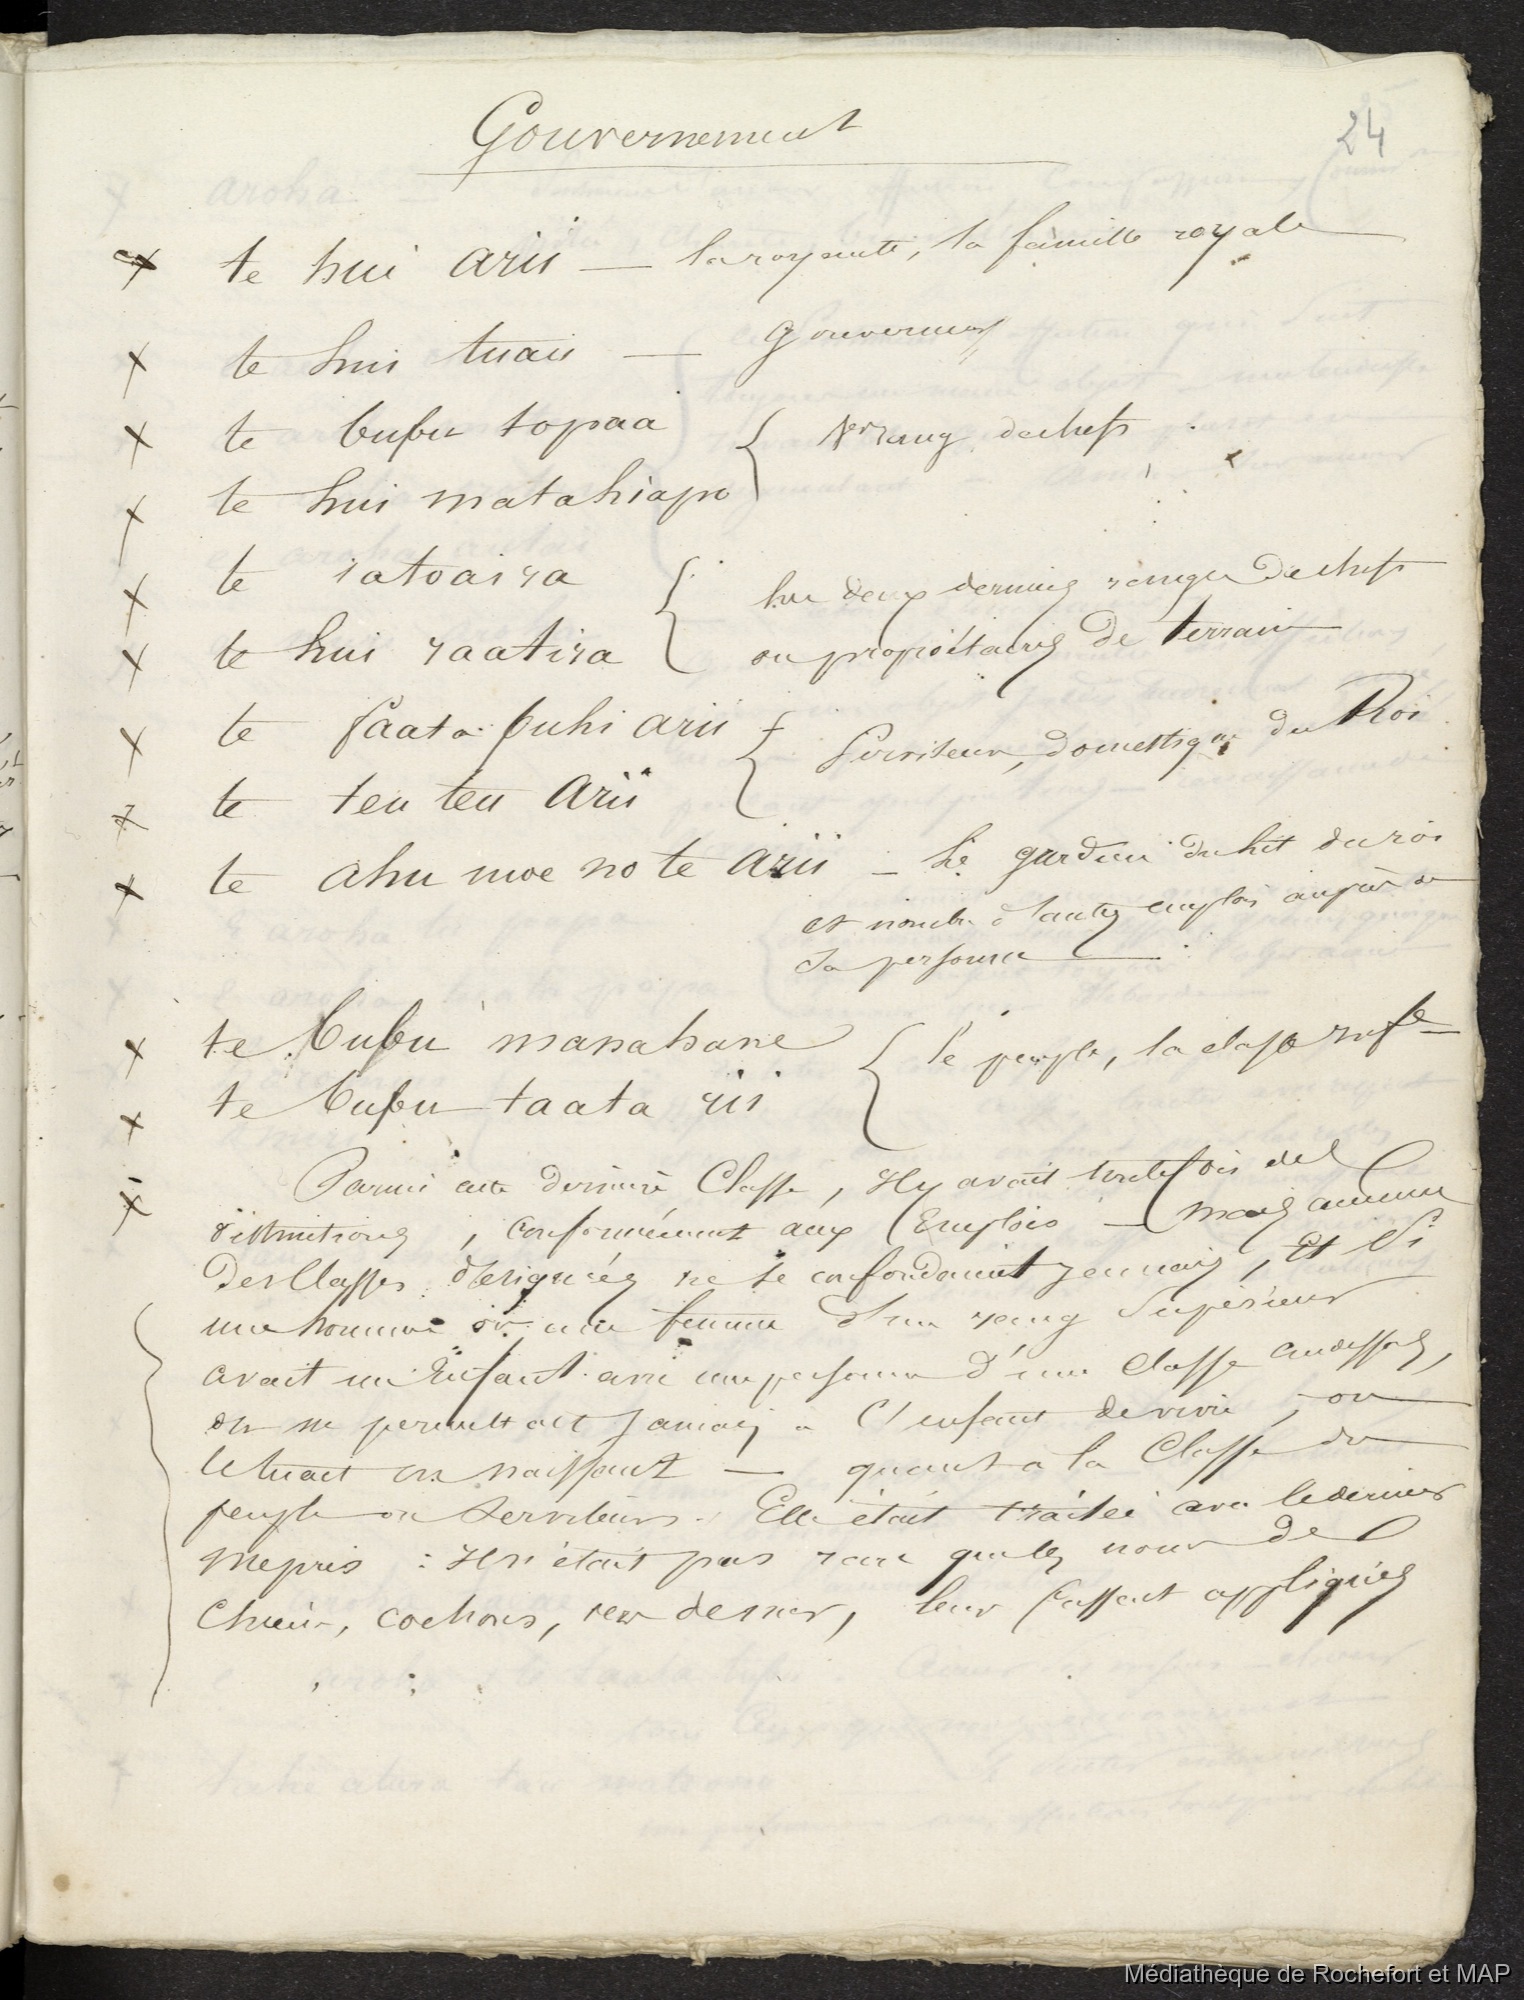 Gouvernement
24
te hui arii — la royauté, la famille royale
te hui tuaii — Gouverneurs
te bubu topaa
te hui matahiapo
1er rang de chefs
te iatoaira
te hui raatira
les deux derniers rangs de chefs
ou propriétaires de terrain
te faata puhi arii
te teu teu Arii
Serviteur, domestique du Roi
te ahu moe no te arii — le gardien du lit du roi
et nombre d'autres emplois auprès de
sa personne
te bubu manahane
te bubu taata rii
le peuple, la classe
Parmi cette dernière Classe, il y avait toutefois des
distinctions, conformément aux Emplois — mais aucune
des Classes désignées ne se confondaient jamais, Et si
une homme ou une femme d'un rang supérieur
avait un Enfant avec une personne d'une Classe audessous,
on ne permettait jamais à l'enfant de vivre, on
le tuait en naissant — quant à la Classe du
peuple ou serviteurs. Elle était traitée avec le dernier
mepris : Il n'était pas rare que les noms de
Chiens, cochons, leur fussent appliqués
Médiathèque de Rochefort et MAP